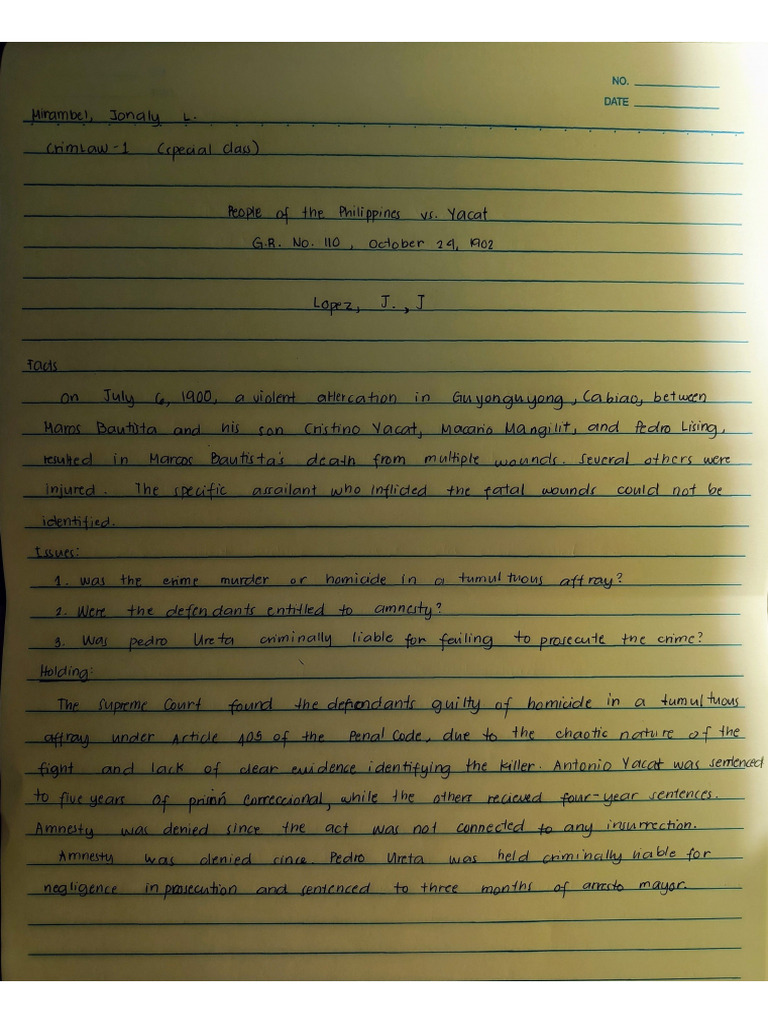 NO.
DATE
Mirambel, Jonaly L.
CrimLaw-1 (special class)
People of the Philippines vs. Yacat
G.R. No. 110, October 24, 1902
Lopez, J., J
Facts
On July 6, 1900, a violent altercation in Guyonguyong, Cabiao, between
Maros Bautista and his son Cristino Yacat, Macario Mangilit, and Pedro Lising,
resulted in Marcos Bautista's death from multiple wounds. Several others were
injured. The specific assailant who inflicted the fatal wounds could not be
identified.
Issues:
1. Was the crime murder or homicide in a tumultuous affray?
2. Were the defendants entitled to amnesty?
3. Was pedro Ureta criminally liable for failing to prosecute the crime?
Holding:
The Supreme Court found the defendants guilty of homicide in a tumultuous
affray under Article 405 of the Penal Code, due to the chaotic nature of the
fight and lack of clear evidence identifying the killer. Antonio Yacat was sentenced
to five years of correccional, while the others recieved four-year sentences.
Amnesty was denied since the act was not connected to any insurrection.
Amnesty was denied since. Pedro Ureta was held criminally liable for
negligence in prosecution and sentenced to three months of arresto mayor.